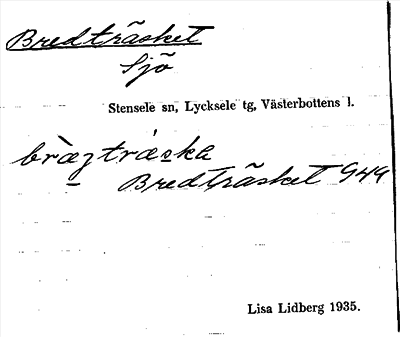 Bredträsket
Sjö
Stensele sn, Lycksele tg, Västerbottens l.
bræ̀ztrǽska
Bredträsket GAG
Lisa Lidberg 1935.